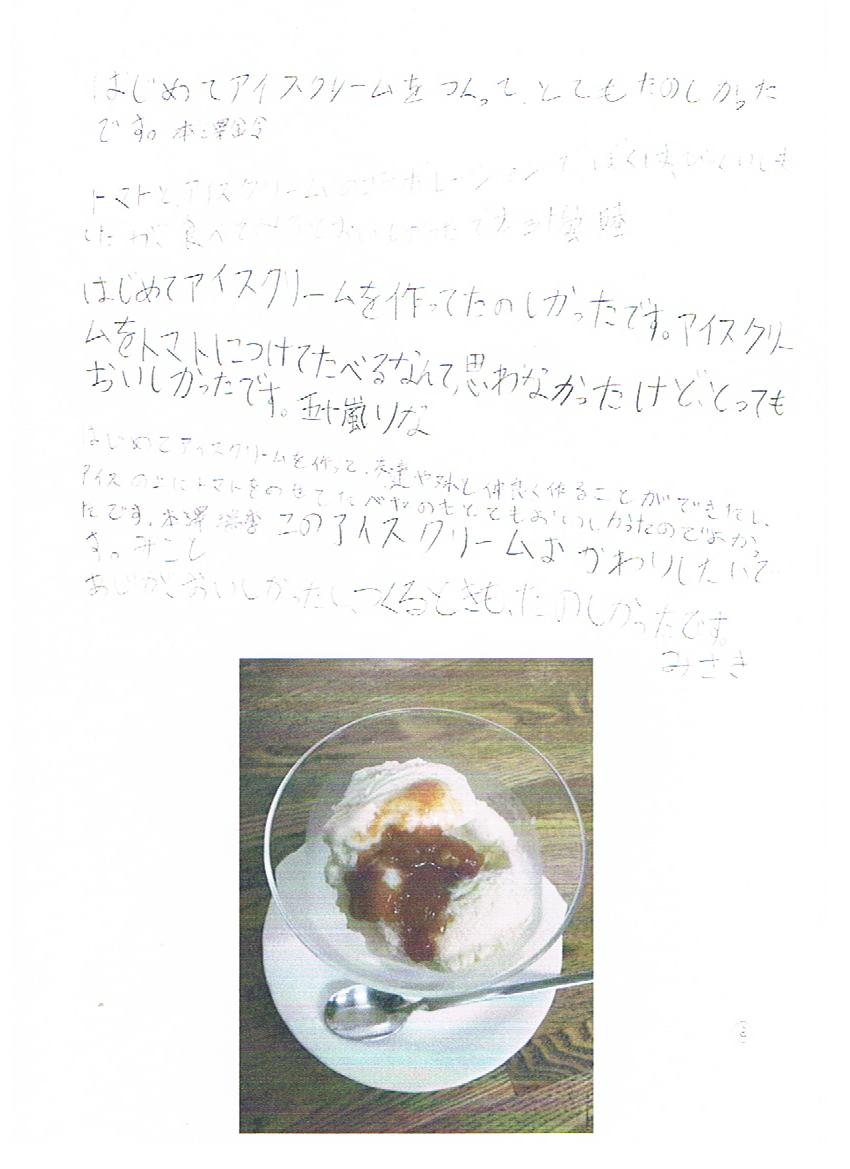 はじめてアイスクリームをつくって、とてもたのしかった
です。本澤鈴
トマトと、アイスクリームのコラボレーションで、ぼくは
したが、食べてみるとおいしかったです。五十嵐睦
はじめてアイスクリームを作ってたのしかったです。アイスクリー
ムをトマトにつけてたべるなんて、思わなかったけど、とっても
おいしかったです。五十嵐りな
はじめてアイスクリームを作って、友達や妹と仲良く作ることができたし、
アイスの上にトマトをのせてたべたのもとてもおいしかったのでよかっ
たです。本澤 このアイスクリームおかわりしたいで
す。みこし
あじが、おいしかったし、つくるときも、たのしかったです。
みさき